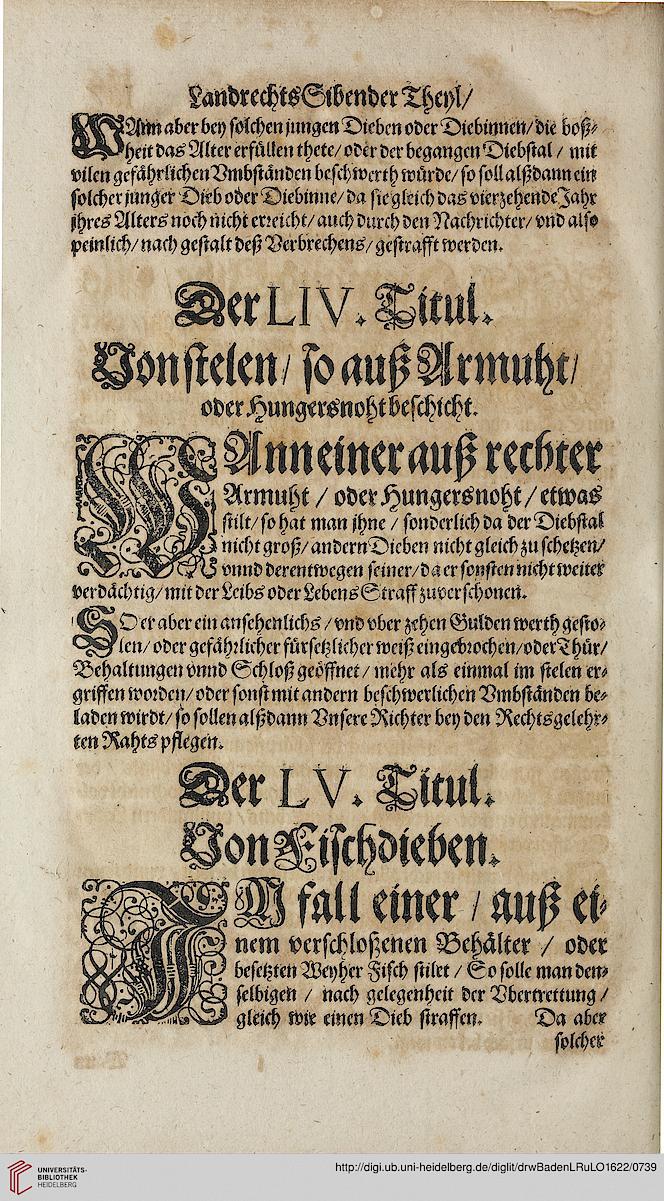 Landrechts Sibender Theyl/
WAnn aber bey solchen jungen Dieben oder Diebinnen/ die boß-
heit das Alter erfüllen thete/ oder der begangen Diebstal / mit
vilen gefährlichen Vmbständen beschwerth würde/ so soll alßdann ein
solcher junger Dieb oder Diebinne/ da sie gleich das vierzehende Jahr
jhres Alters noch nicht erreicht/ auch durch den Nachrichter/ vnd also
peinlich/ nach gestalt deß Verbrechens/ gestrafft werden.
Der LIV. Titul.
Von stelen/ so auß Armuht/
oder Hungersnoht beschicht.
WAnn einer auß rechter
Armuht / oder Hungersnoht / etwas
stilt/ so hat man jhne / sonderlich da der Diebstal
nicht groß/ andern Dieben nicht gleich zu schetzen/
vnnd derentwegen seiner/ da er sonsten nicht weiter
verdächtig/ mit der Leibs oder Lebens Straff zuverschonen.
SO er aber ein ansehenlichs / vnd vber zehen Gulden werth gesto-
len/ oder gefährlicher fürsetzlicher weiß eingebrochen/ oder Thür/
Behaltungen vnnd Schloß geöffnet / mehr als einmal im stelen er-
griffen worden/ oder sonst mit andern beschwerlichen Vmbständen be-
laden wirdt/ so sollen alßdann Vnsere Richter bey den Rechtsgelehr-
ten Rahts pflegen.
Der LV. Titul.
Von Fischdieben.
IM fall einer / auß ei-
nem verschloßenen Behälter / oder
besetzten Weyher Fisch stilet / So solle man dem-
selbigen / nach gelegenheit der Vbertrettung /
gleich wie einen Dieb straffen. Da aber
solcher
UNIVERSITÄTS-
BIBLIOTHEK
HEIDELBERG
http://digi.ub.uni-heidelberg.de/diglit/drwBadenLRuLO1622/0739